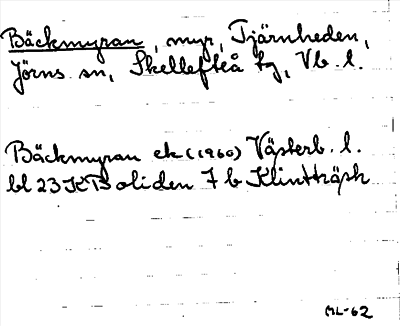 Bäckmyran, myr, Tjärnheden,
Jörns sn, Skellefteå kg, Vb. l.
Bäckmyran ek (1960) Västerb. l.
bl 23 K Boliden 7 b Klintträsk
ML-62